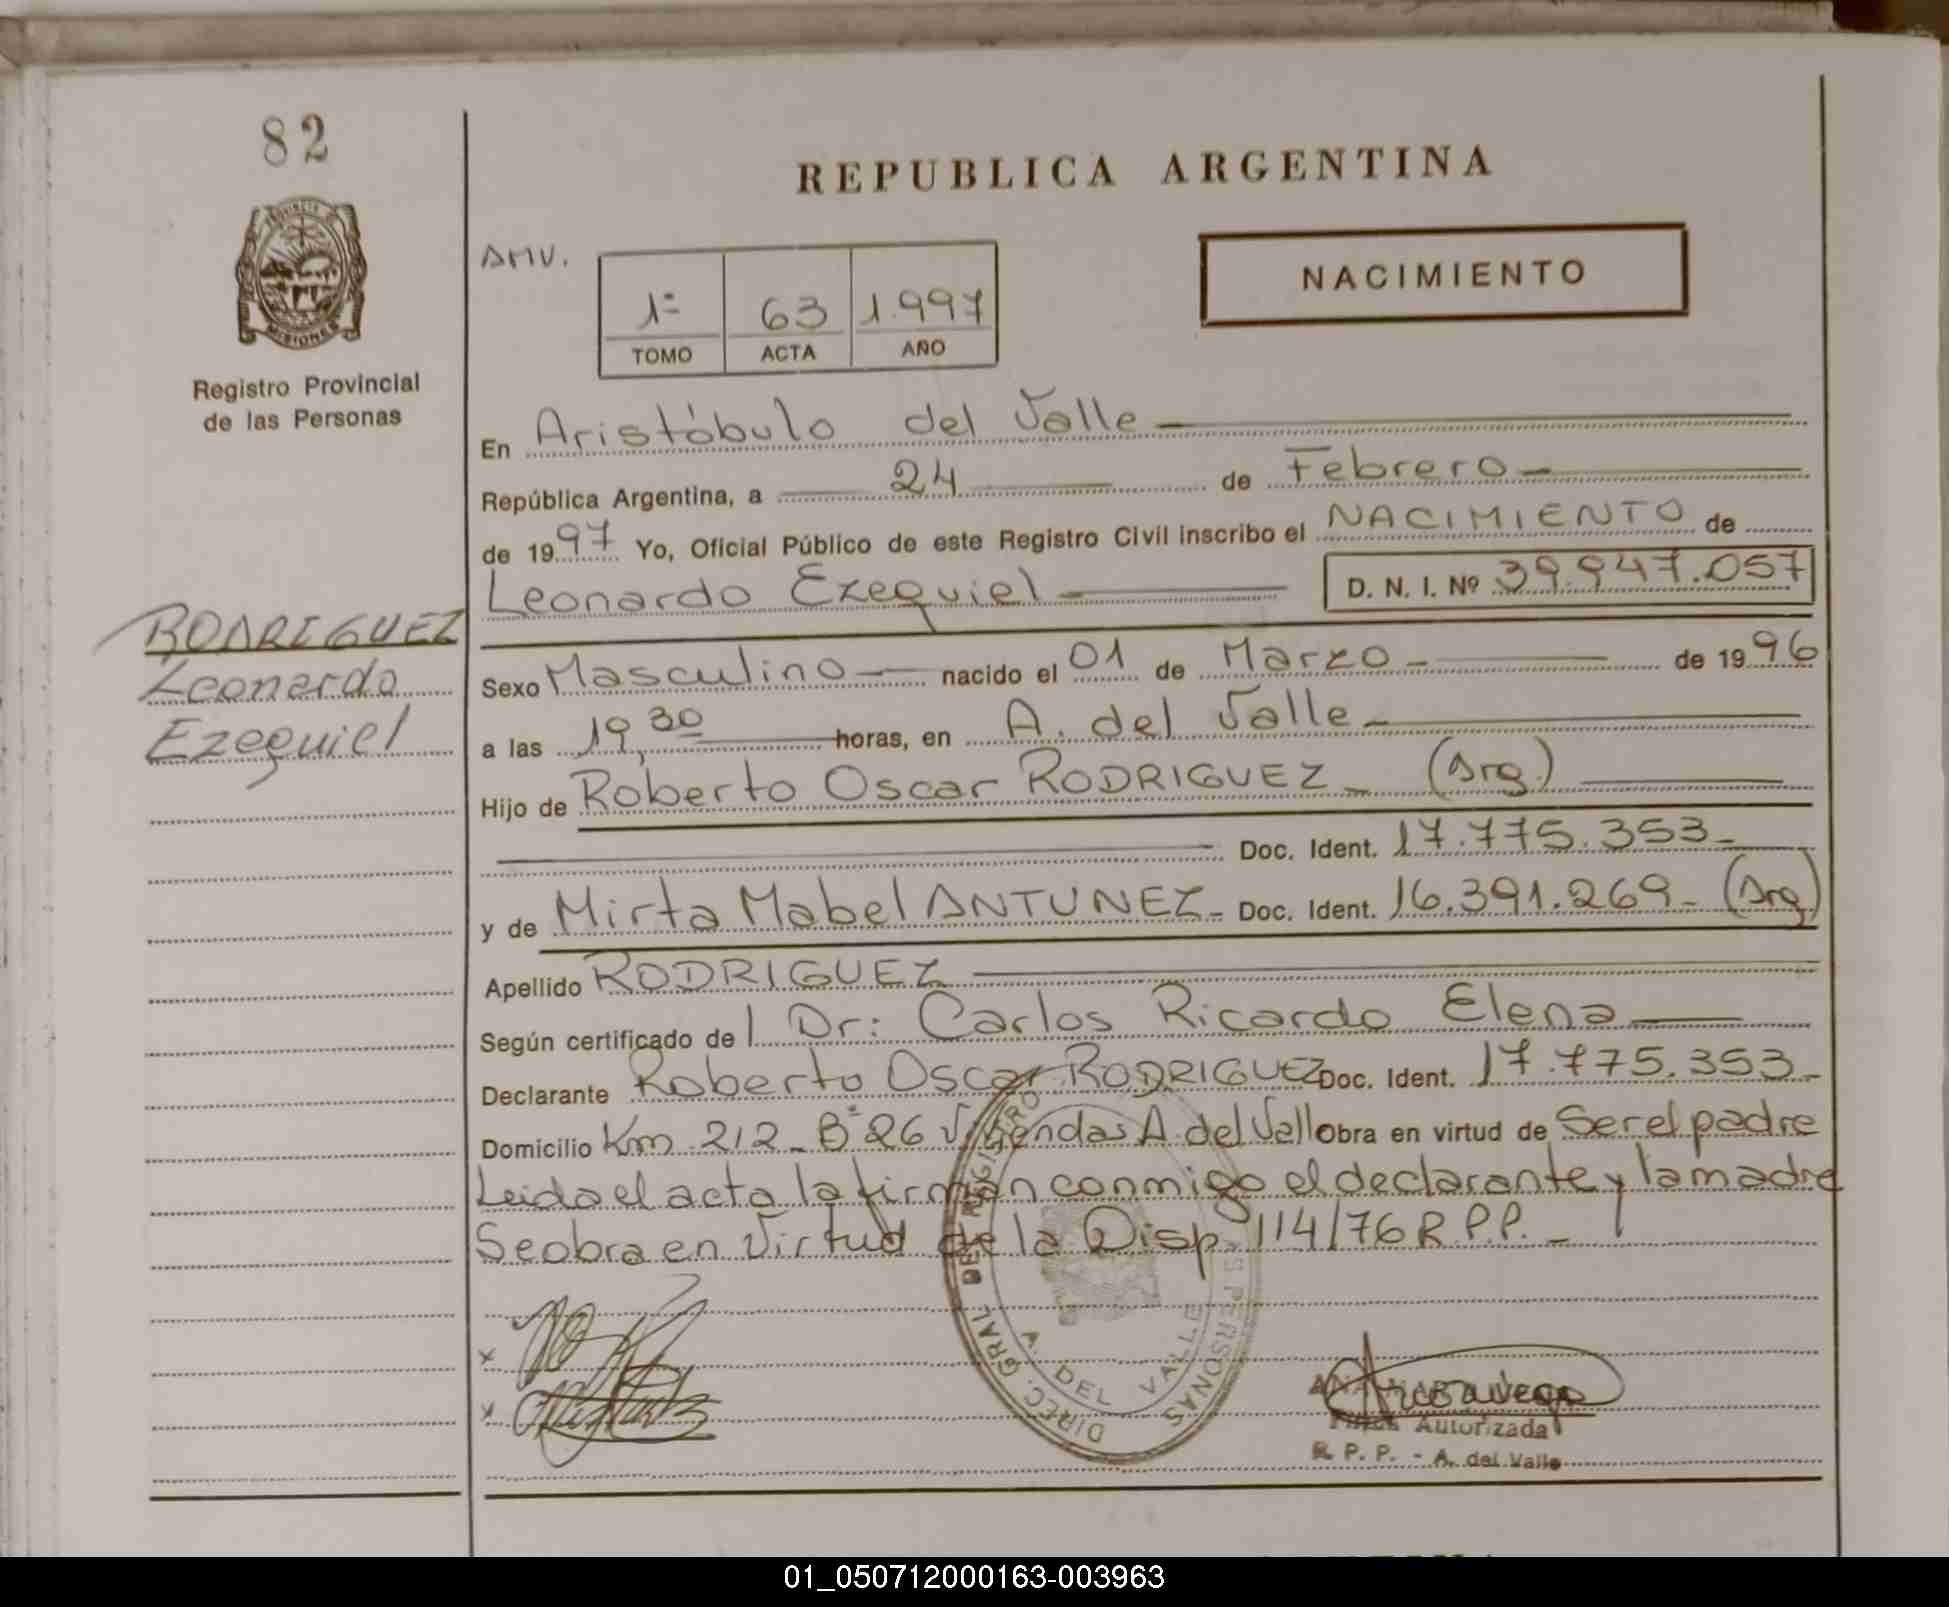 82
REPUBLICA ARGENTINA
PROVINCIA DE
MISIONES
Registro Provincial
de las Personas
AMV.
1º 63 1.997
TOMO ACTA AÑO
NACIMIENTO
En Aristóbulo del Valle
República Argentina, a 24 de Febrero
de 1997 Yo, Oficial Público de este Registro Civil inscribo el NACIMIENTO de
Leonardo Ezequiel D. N. I. Nº 39.947.057
RODRIGUEZ
Leonardo
Ezequiel
Sexo Masculino nacido el 01 de Marzo de 1996
a las 19,30 horas, en A. del Valle
Hijo de Roberto Oscar RODRIGUEZ (Arg.)
Doc. Ident. 17.775.353
y de Mirta Mabel ANTUNEZ Doc. Ident. 16.391.269 (Arg)
Apellido RODRIGUEZ
Según certificado de l Dr: Carlos Ricardo Elena
Declarante Roberto Oscar RODRIGUEZ Doc. Ident. 17.775.353
Domicilio Km 212 Bº 26 Viviendas A del Valle obra en virtud de Ser el padre
Leida el acta la firman conmigo el declarante y la madre
Se obra en Virtud de la Disp. 114/76 R.P.P.
DIREC. GRAL DEL REGISTRO PERSONAS
A. DEL VALLE
Autorizada
R. P. P. - A. del Valle
01_050712000163-003963